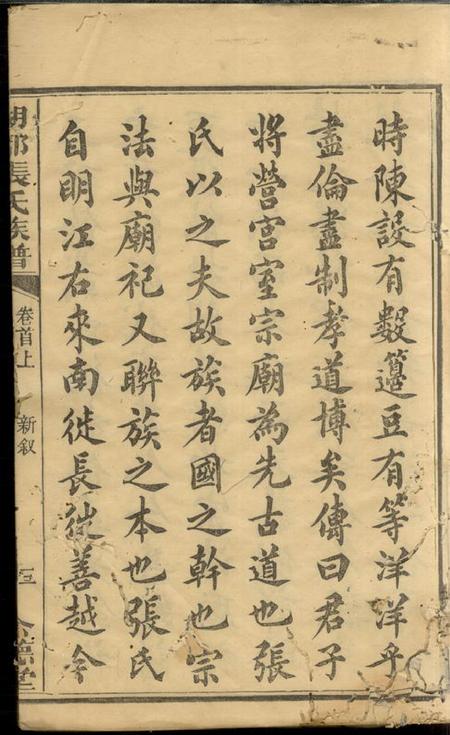 時陳設有數籩豆有等洋洋乎
盡倫盡制孝道博矣傳曰君子
將營宮室宗廟為先古道也張
氏以之夫故族者國之幹也宗
法與廟祀又聯族之本也張氏
自明江右來南徙長徙善越今
張氏族譜
卷首上
新叙
三
堂